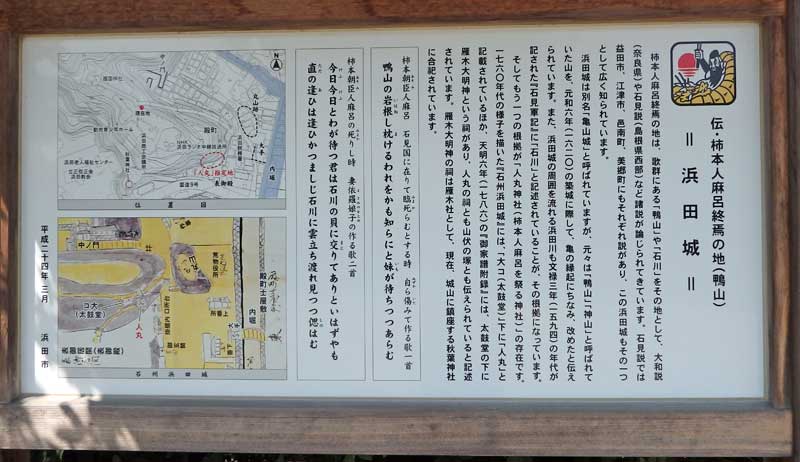 伝・柿本人麻呂終焉の地（鴨山）
＝浜田城＝
柿本人麻呂終焉の地は、歌群にある「鴨山」や「石川」をその地として、大和説
（奈良県）や石見説（島根県西部）など諸説が論じられてきています。石見説では
益田市、江津市、邑南町、美郷町にもそれぞれ説があり、この浜田城もその一つ
として広く知られています。
浜田城は別名「亀山城」と呼ばれていますが、元々は「鴨山」「神山」と呼ばれて
いた山を、元和六年（一六二〇）の築城に際して、亀の縁起にちなみ、改めたと伝え
られています。また、浜田城の周囲を流れる浜田川も文禄三年（一五九四）の年代が
記された『石見軍記』に「石川」と記述されていることが、その根拠になっています。
そしてもう一つの根拠が「人丸神社（柿本人麻呂を祭る神社）」の存在です。
一七六〇年代の様子を描いた『石州浜田城』には、「大コ（太鼓堂）」下に「人丸」と
記載されているほか、天明六年（一七八六）の『御家譜附録』には、太鼓堂の下に
雁木大明神という祠があり、人丸の祠とも山伏の塚とも伝えられていると記述
されています。雁木大明神の祠は雁木社として、現在、城山に鎮座する秋葉神社
に合祀されています。
柿本朝臣人麻呂 石見国に在りて臨死らむとする時 自ら傷みて作る歌一首
鴨山の岩根し枕けるわれをかも知らにと妹が待ちつつあらむ
柿本朝臣人麻呂の死りし時 妻依羅娘子の作る歌二首
今日今日とわが待つ君は石川の貝に交りてありといはずやも
直の逢ひは逢ひかつましじ石川に雲立ち渡れ見つつ偲はむ
平成二十四年三月 浜田市
中ノ門
護国神社
現在地
丸山跡
殿町
大手
内堀
勤労青少年ホーム
NHK
浜田ラジオ中継放送所
浜田商工会議所
秋葉神社
浜田老人福祉センター
立正佼正会
浜田教会
「人丸」推定地
国道9号
表御殿
位置図
中ノ門
荒物役所
殿町士屋敷
コ大
（太鼓堂）
所番上
内堀
大手
御玄関
番下
人丸
表御居間（表御殿）
石州浜田城